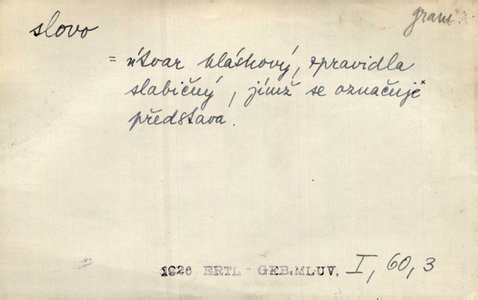 gram.
slovo
= útvar hláskový, zpravidla
slabičný, jímž se označuje
představa.
1926 ERTL - GEB.MLUV. I, 60, 3